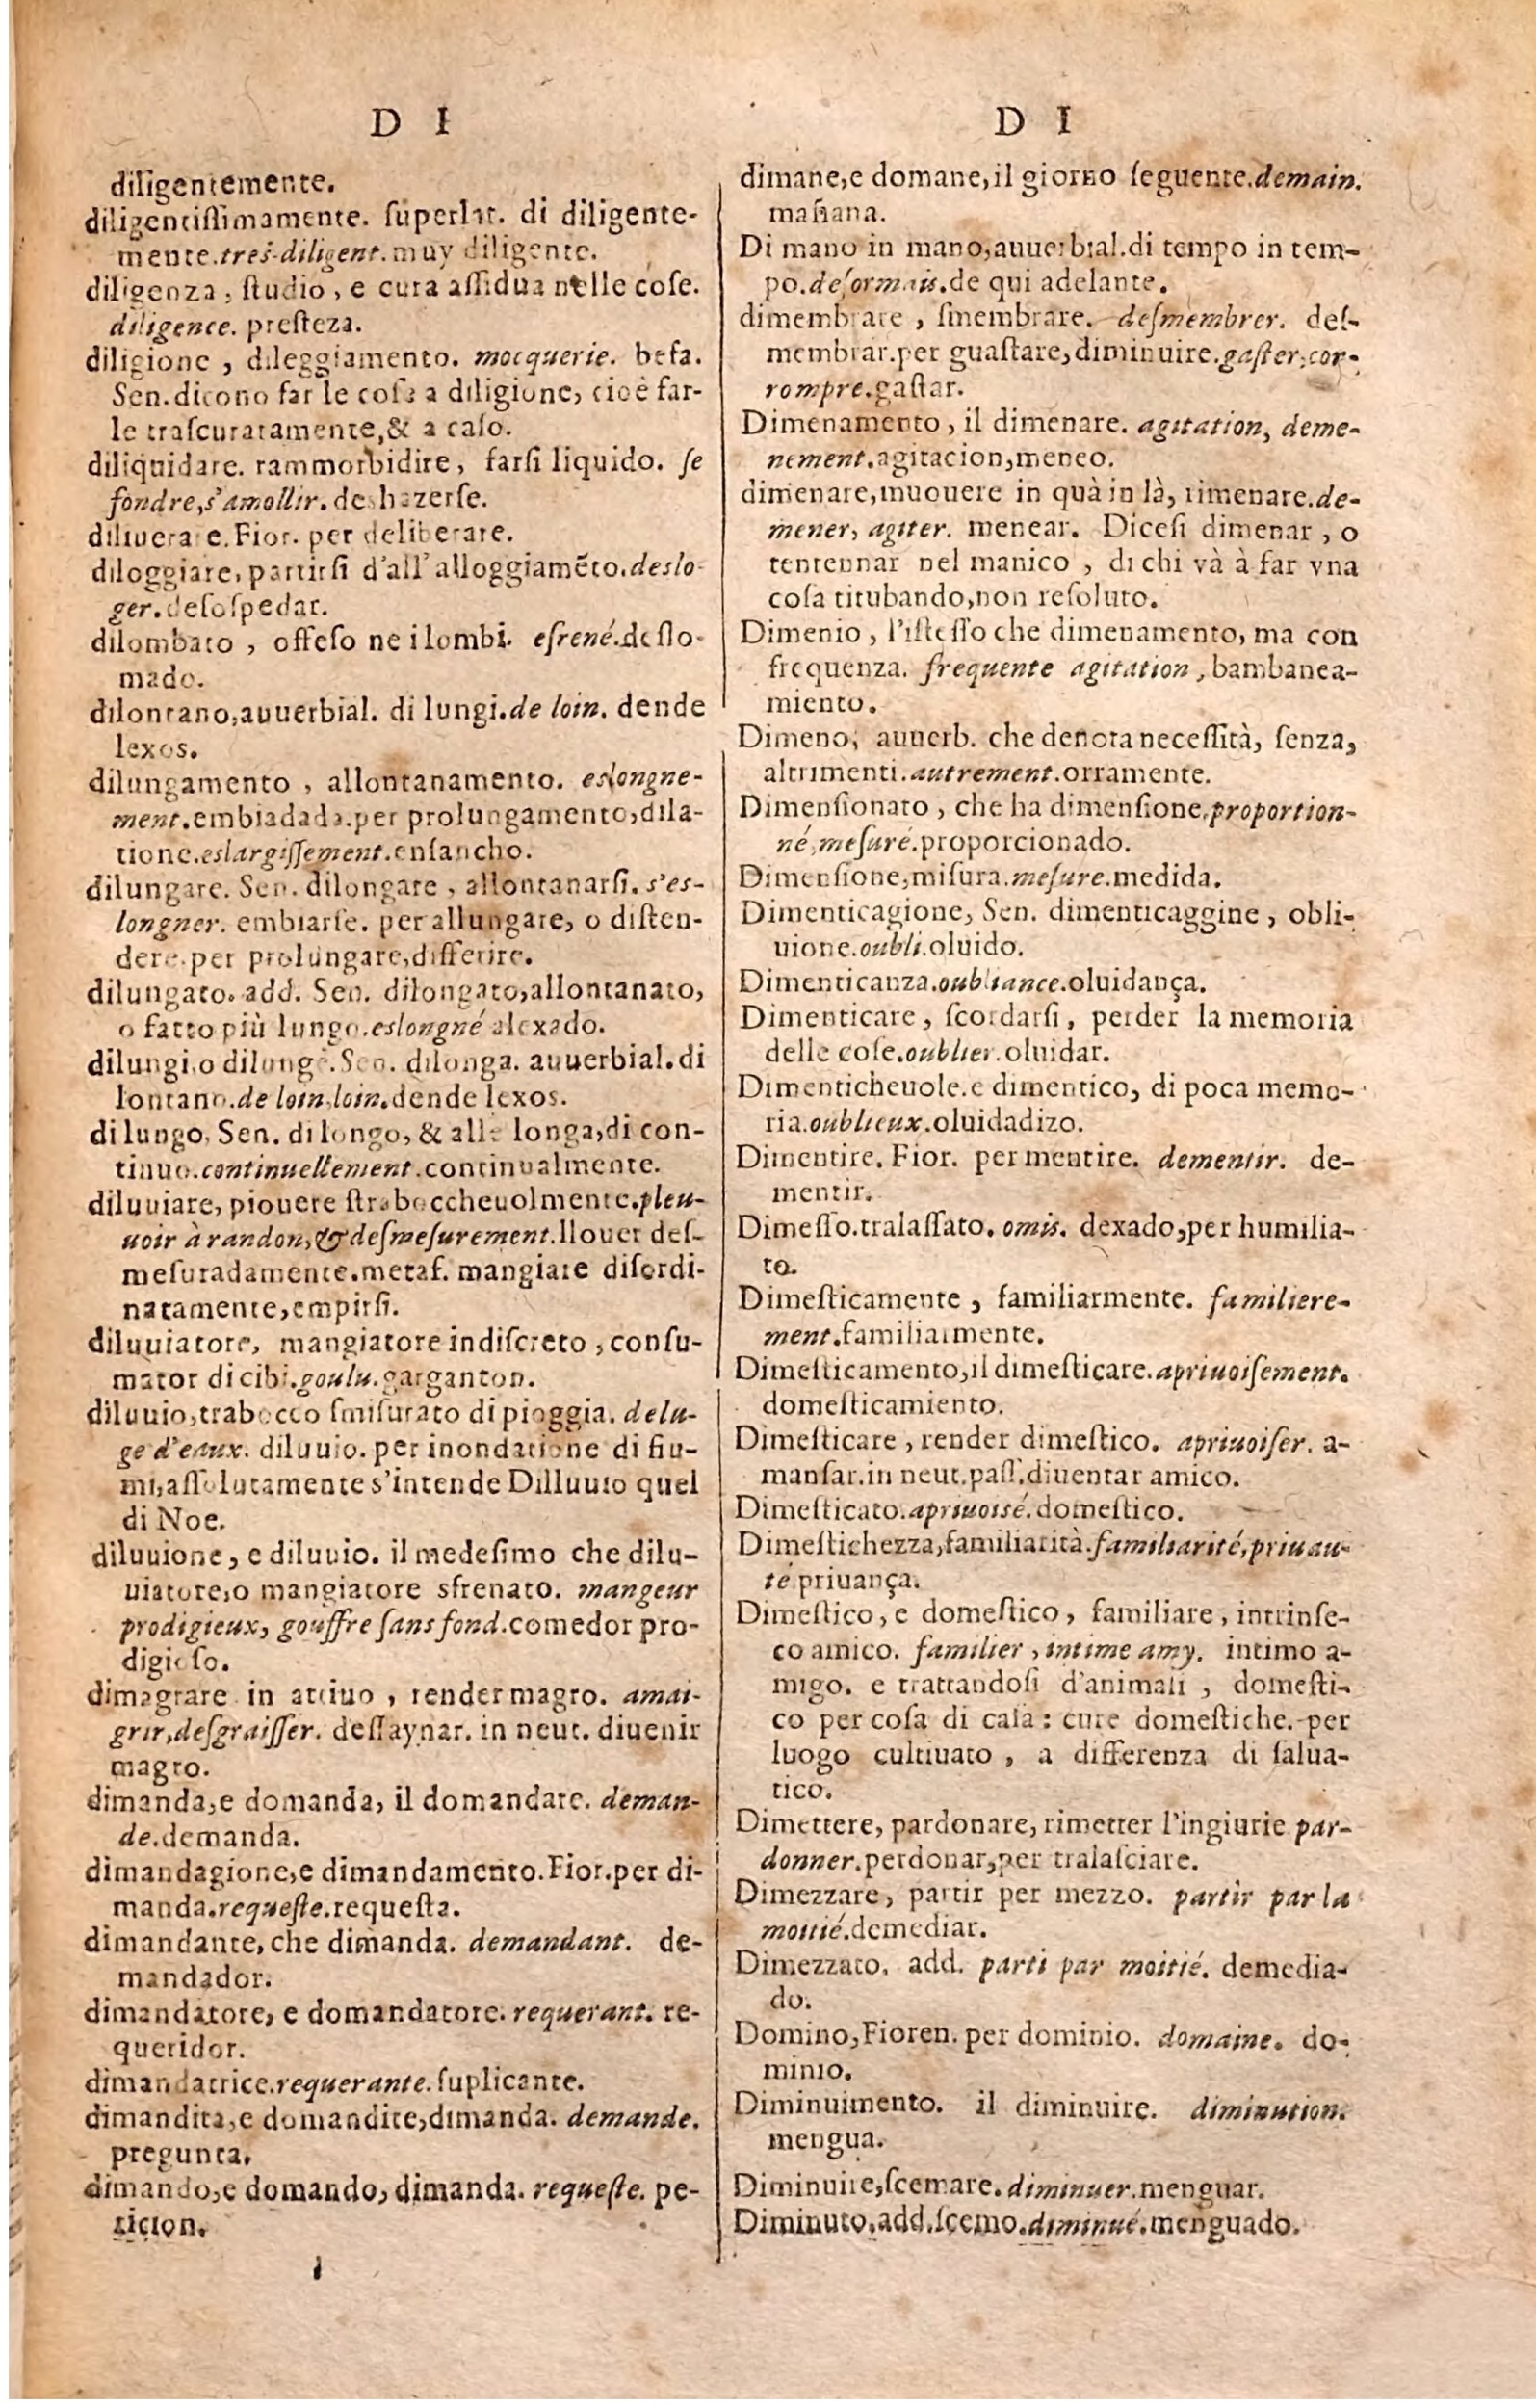 D I
diligentemente.
diligentiſſimamente. ſuperlat. di diligente-
mente.tres-diligent.muy diligente.
diligenza, ſtudio, e cura aſſidua nelle coſe.
diligence. preſteza.
diligione, dileggiamento. mocquerie. befa.
Sen.dicono far le coſe a diligione, cioè far-
le traſcuratamente,& a caſo.
diliquidare. rammorbidire, farſi liquido. ſe
fondre,s'amollir.deshazerſe.
diliuerare.Fior. per deliberare.
diloggiare, partirſi d'all'alloggiamẽto.deslo-
ger.deſoſpedar.
dilombato, offeſo ne i lombi. eſrené.deſlo-
mado.
dilontano,auuerbial. di lungi.de loin. dende
lexos.
dilungamento, allontanamento. eslongne-
ment.embiadada.per prolungamento,dila-
tione.eslargiſſement.enſancho.
dilungare. Sen. dilongare, allontanarſi. s'es-
longner. embiarſe. per allungare, o diſten-
dere.per prolungare,differire.
dilungato. add. Sen. dilongato,allontanato,
o fatto più lungo.eslongné alexado.
dilungi,o dilunge.Sen. dilonga. auuerbial.di
lontano.de loin,loin.dende lexos.
di lungo, Sen. di longo, & alle longa,di con-
tinuo.continuellement.continualmente.
diluuiare, piouere ſtraboccheuolmente.pleu-
uoir à randon,& deſmeſurement.llouer deſ-
meſuradamente.metaf. mangiare diſordi-
natamente,empirſi.
diluuiatore, mangiatore indiſcreto, conſu-
mator di cibi.goulu.garganton.
diluuio,trabocco ſmiſurato di pioggia. delu-
ge d'eaux. diluuio. per inondatione di fiu-
mi,aſſolutamente s'intende Dilluuio quel
di Noe.
diluuione, e diluuio. il medeſimo che dilu-
uiatore,o mangiatore sfrenato. mangeur
prodigieux, gouffre ſans fond.comedor pro-
digioſo.
dimagrare in attiuo, render magro. amai-
grir,deſgraiſſer. deſſaynar. in neut. diuenir
magro.
dimanda,e domanda, il domandare. deman-
de.demanda.
dimandagione,e dimandamento.Fior.per di-
manda.requeſte.requeſta.
dimandante, che dimanda. demandant. de-
mandador.
dimandatore, e domandatore. requerant. re-
queridor.
dimandatrice.requerante.ſuplicante.
dimandita,e domandite,dimanda. demande.
pregunta.
dimando,e domando, dimanda. requeſte. pe-
ticion.
D I
dimane,e domane,il giorno ſeguente.demain.
mañana.
Di mano in mano,auuerbial.di tempo in tem-
po.deſormais.de qui adelante.
dimembrare, ſmembrare. deſmembrer. deſ-
membrar.per guaſtare,diminuire.gaſter,cor-
rompre.gaſtar.
Dimenamento, il dimenare. agitation, deme-
nement.agitacion,meneo.
dimenare,muouere in quà in là, rimenare.de-
mener, agiter. menear. Diceſi dimenar, o
tentennar nel manico, di chi và à far vna
coſa titubando,non reſoluto.
Dimenio, l'iſteſſo che dimenamento, ma con
frequenza. frequente agitation, bambanea-
miento.
Dimeno, auuerb. che denota neceſſità, ſenza,
altrimenti.autrement.orramente.
Dimenſionato, che ha dimenſione.proportion-
né,meſuré.proporcionado.
Dimenſione,miſura.meſure.medida.
Dimenticagione, Sen. dimenticaggine, obli-
uione.oubli.oluido.
Dimenticanza.oubliance.oluidança.
Dimenticare, ſcordarſi, perder la memoria
delle coſe.oublier.oluidar.
Dimenticheuole.e dimentico, di poca memo-
ria.oublieux.oluidadizo.
Dimentire. Fior. per mentire. dementir. de-
mentir.
Dimeſſo.tralaſſato. omis. dexado,per humilia-
to.
Dimeſticamente, familiarmente. familiere-
ment.familiarmente.
Dimeſticamento,il dimeſticare.apriuoiſement.
domeſticamiento.
Dimeſticare, render dimeſtico. apriuoiſer. a-
manſar.in neut.paſſ.diuentar amico.
Dimeſticato.apriuoisé.domeſtico.
Dimeſtichezza,familiarità.familiarité,priuau-
té priuança.
Dimeſtico, e domeſtico, familiare, intrinſe-
co amico. familier, intime amy. intimo a-
migo. e trattandoſi d'animali, domeſti-
co per coſa di caſa: cure domeſtiche. per
luogo cultiuato, a differenza di ſalua-
tico.
Dimettere, pardonare, rimetter l'ingiurie par-
donner.perdonar,per tralaſciare.
Dimezzare, partir per mezzo. partir par la
moitié.demediar.
Dimezzato. add. parti par moitié. demedia-
do.
Domino, Fioren. per dominio. domaine. do-
minio.
Diminuimento. il diminuire. diminution.
mengua.
Diminuire,ſcemare.diminuer.menguar.
Diminuto.add.ſcemo.diminué.menguado.